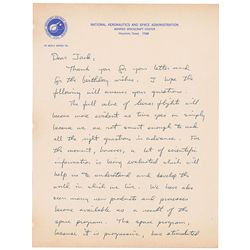 NATIONAL AERONAUTICS AND SPACE ADMINISTRATION
MANNED SPACECRAFT CENTER
HOUSTON, TEXAS 77058
IN REPLY REFER TO:
Dear Jack,
Thank you for your letter and
for the birthday wishes. I hope the
following will answer your questions.
The full value of lunar flight will
become more evident as time goes on simply
because we are not smart enough to ask
all the right questions in advance. For
the moment, however, a lot of scientific
information is being evaluated which will
help us to understand and develop the
world in which we live. We have also
seen many new products and processes
become available as a result of the
space program. The space program,
because it is progressive, has stimulated